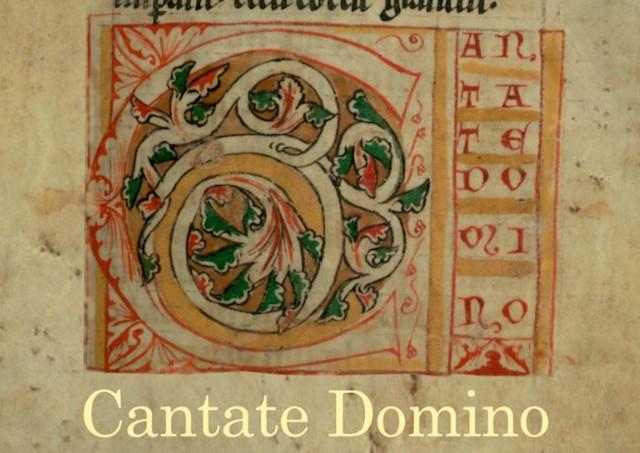 C
AN
TA
TE
DO
MI
NO
Cantate Domino